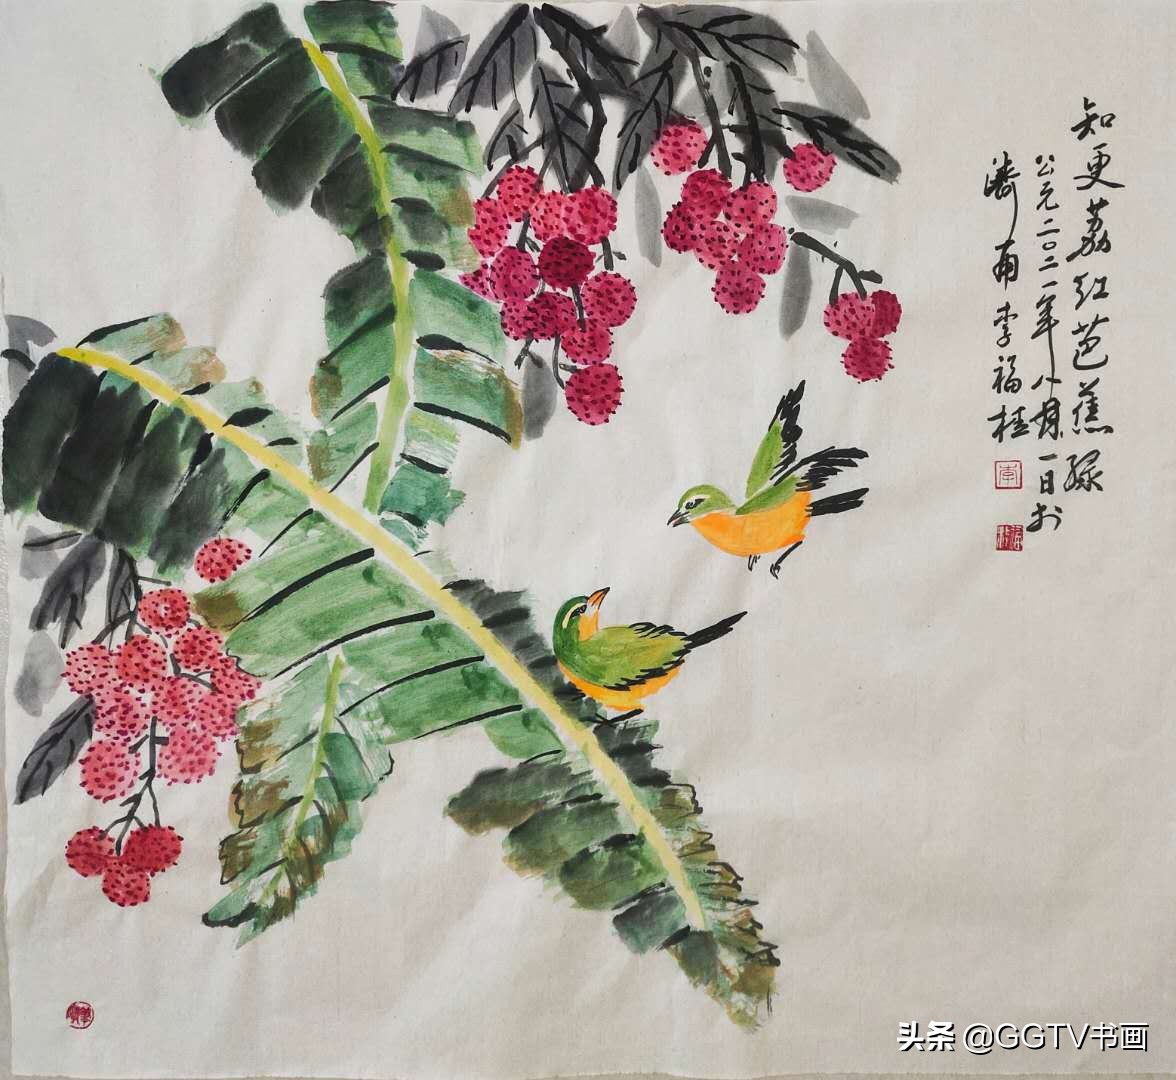 知更荔红芭蕉绿
公元二〇二一年八月一日於
濟南李福桂
李
头条 @GGTV书画